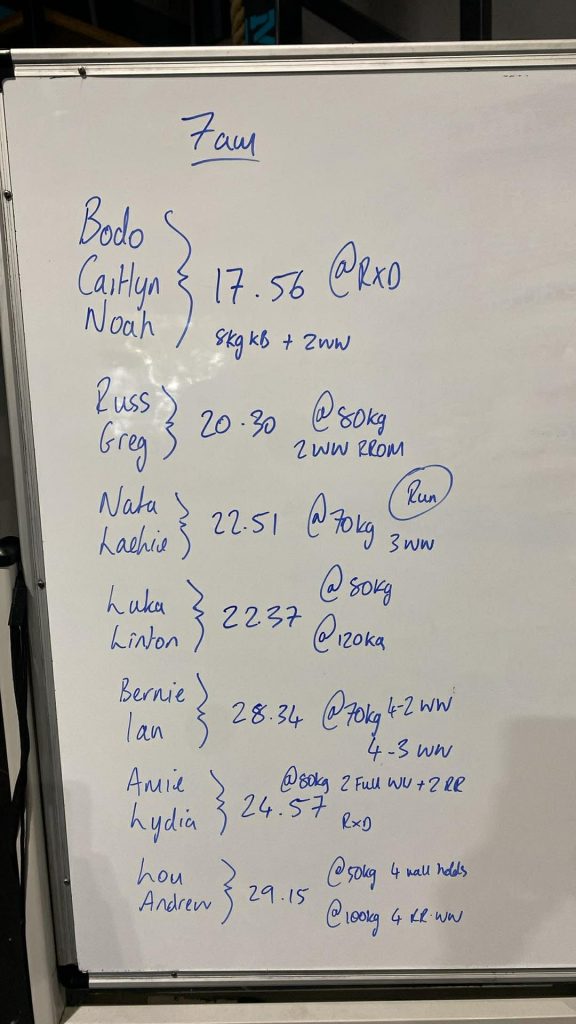 7am
Bodo
Caitlyn
Noah
17.56 @RXD
8kg KB + 2WW
Russ
Greg
20.30 @80kg
2 WW RROM
Nata
Lachie
22.51 @70kg
Run
3 WW
Luka
Linton
2237
@80kg
@120kg
Bernie
Ian
28.34 @70kg 4-2 WW
4-3 WW
Amie
Lydia
@80kg 2 Full WW + 2 RR
24.57
RxD
Lou
Andrew
29.15
@50kg 4 wall holds
@100kg 4 RR.WW